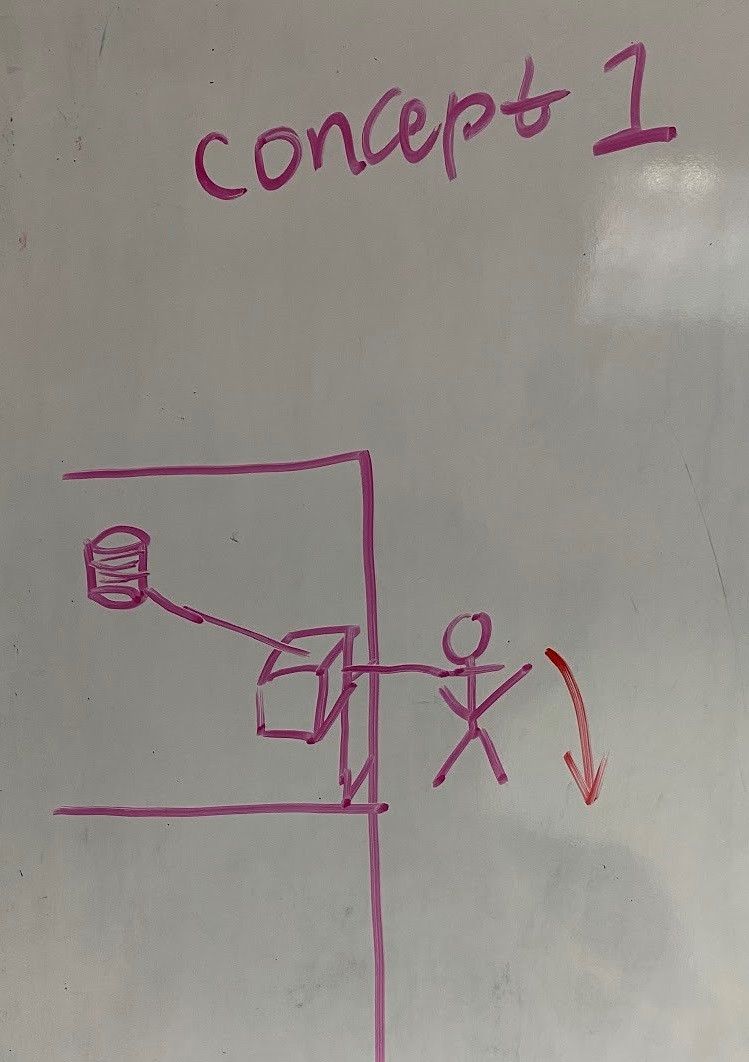 concept 1